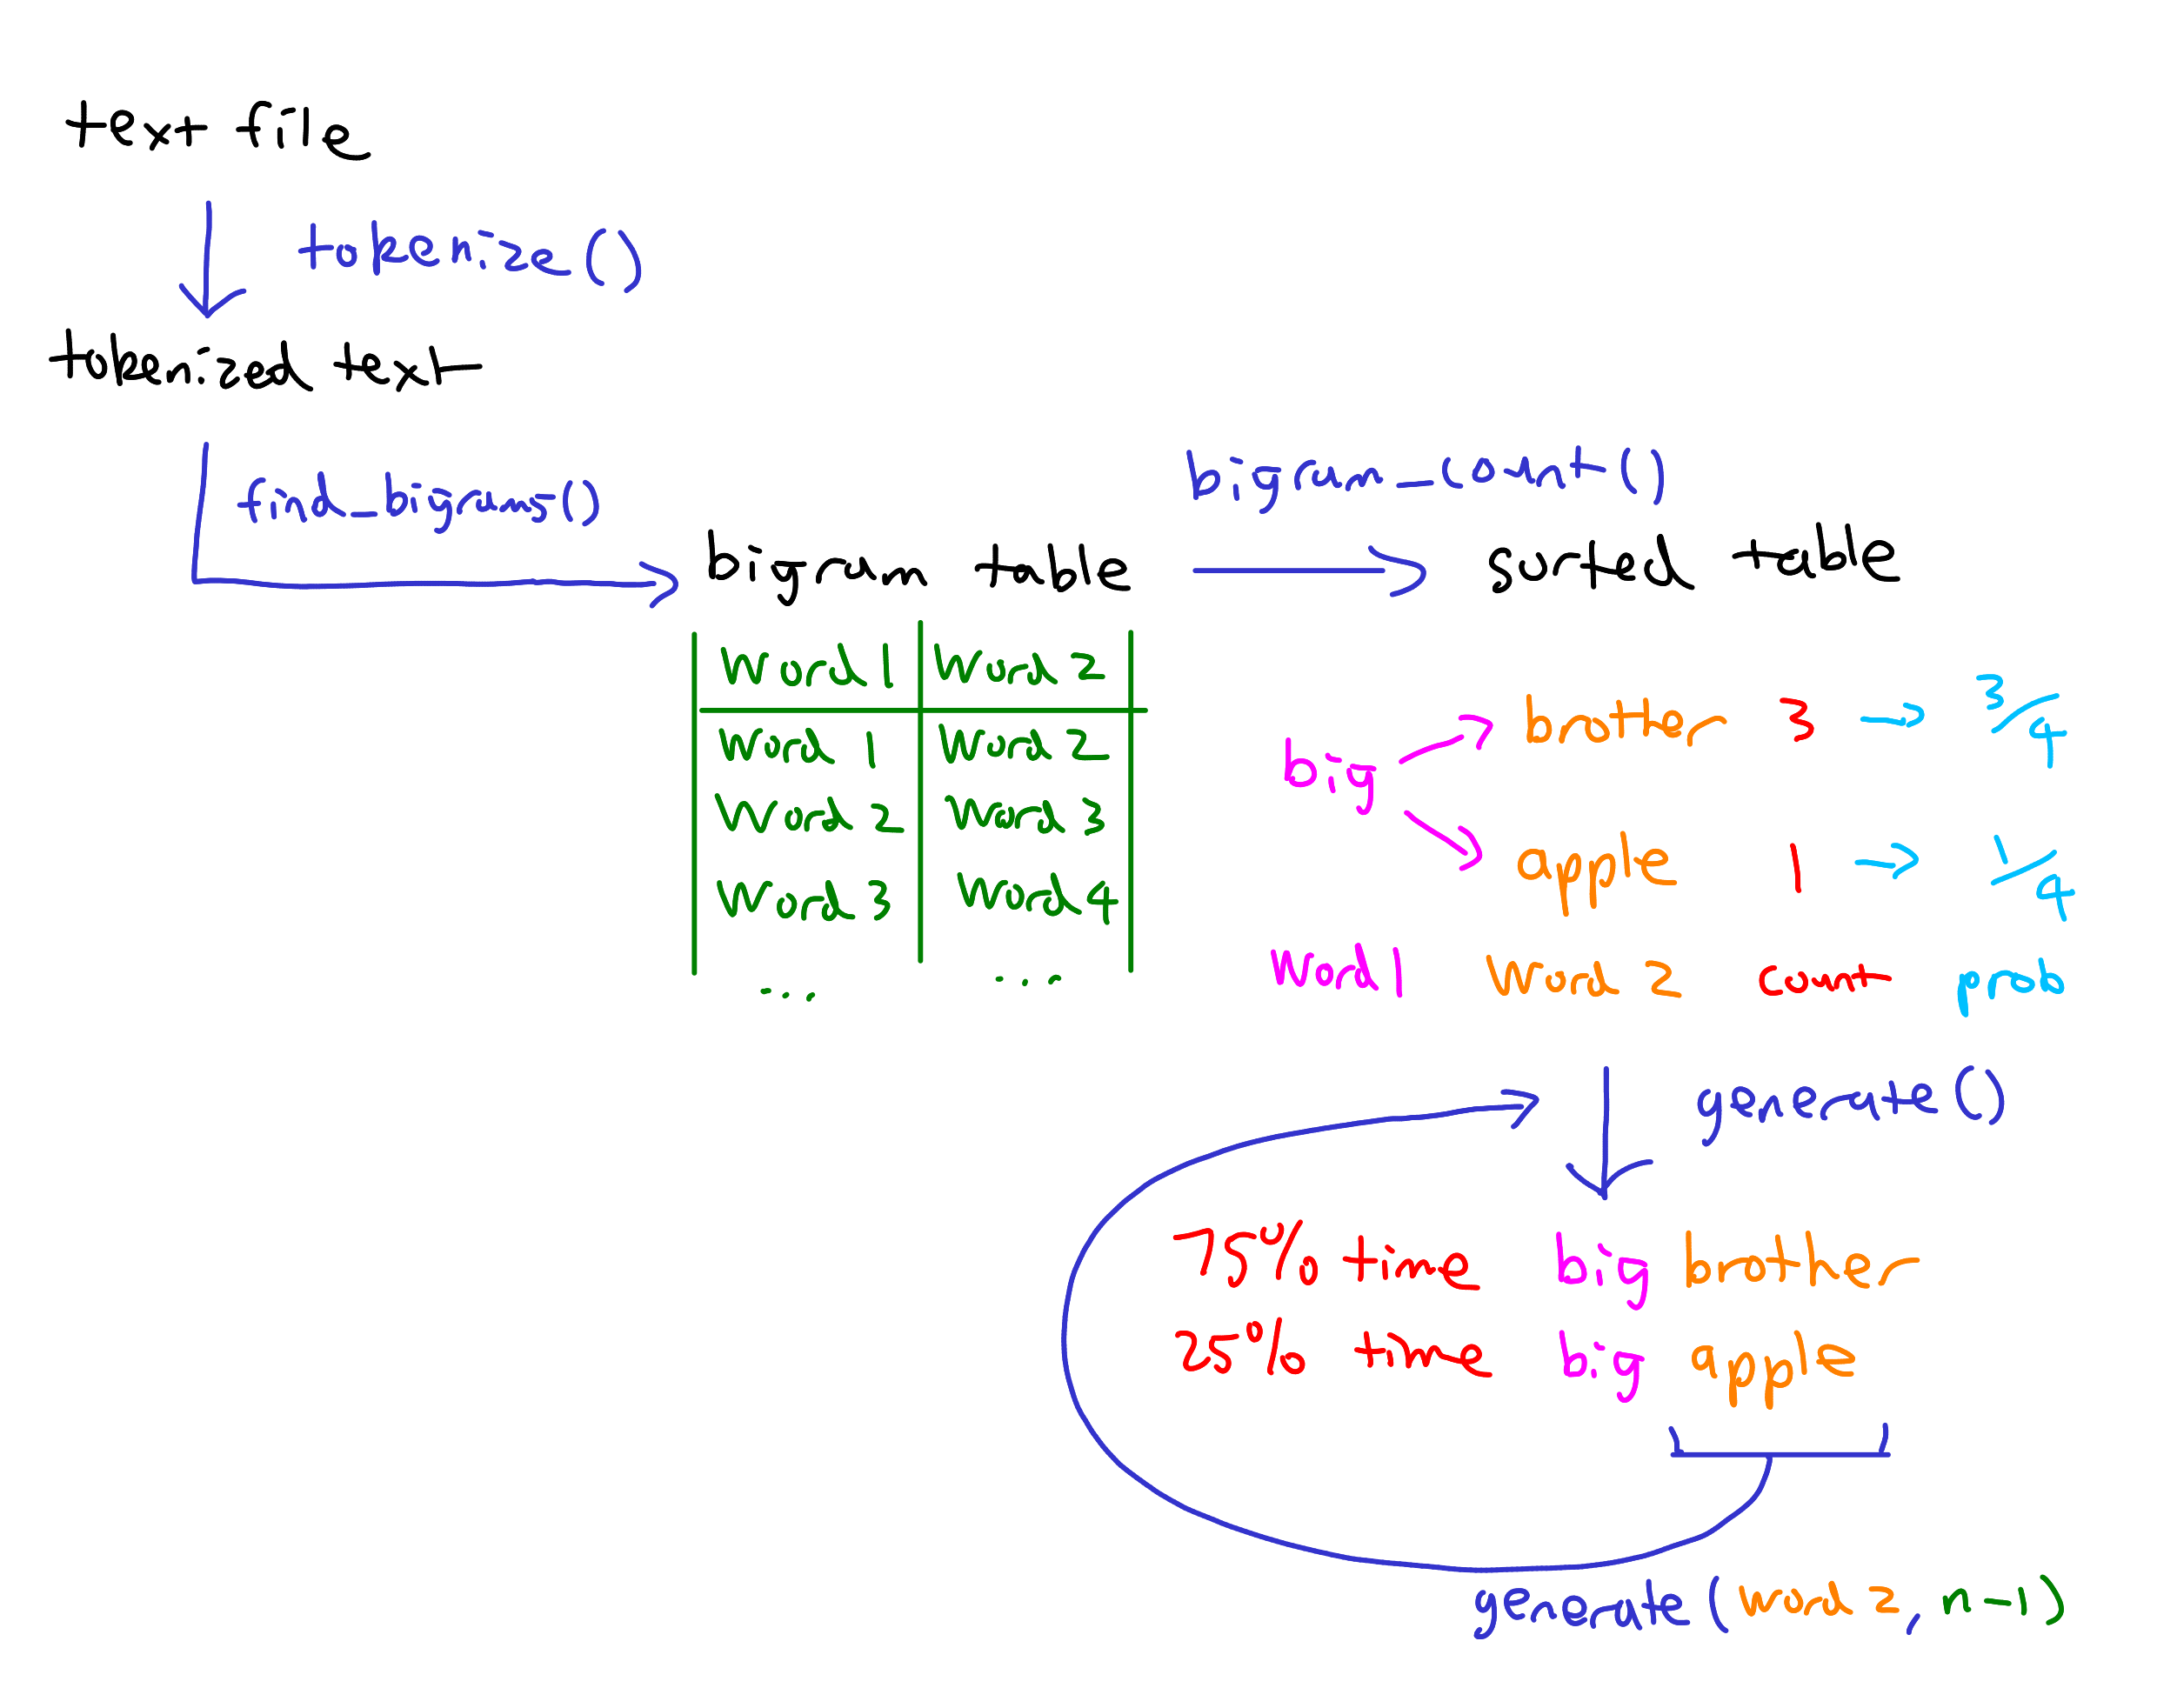 text file
tokenize()
tokenized text
find_bigrams()
bigram table
bigram_count()
sorted table
word1 word2
word1 word2
word2 word3
word3 word4
... ...
big
brother 3 → 3/4
apple 1 → 1/4
word1 word2 count prob
generate()
75% time big brother
25% time big apple
generate(word2, n-1)